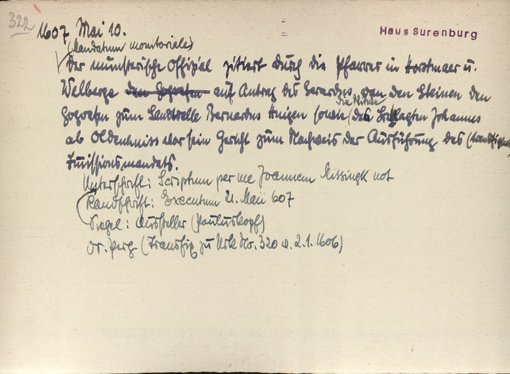 322
1607 Mai 10.
Haus Surenburg
(Mandatum monitoriale)
Der münsterische Offizial zitiert durch die Pfarrer in Horstmar u.
Welberge den Gografen auf Antrag des Gerardus von den Steinen den
Gografen zum Sandwelle Bernardus Huigen sowie die Mit des Beklagten Johannes
ab Oldenhuis vor sein Gericht zum Nachweis der Ausführung des
Immissionsmandats.
Unterschrift: Scriptum per me Joannem Missingk not
Randschrift: Executum 21. Maii 607
Siegel: Aussteller (Pauluskopf)
Or. Perg (Transfix zu Urk Nr. 320 v. 2.1.1606)